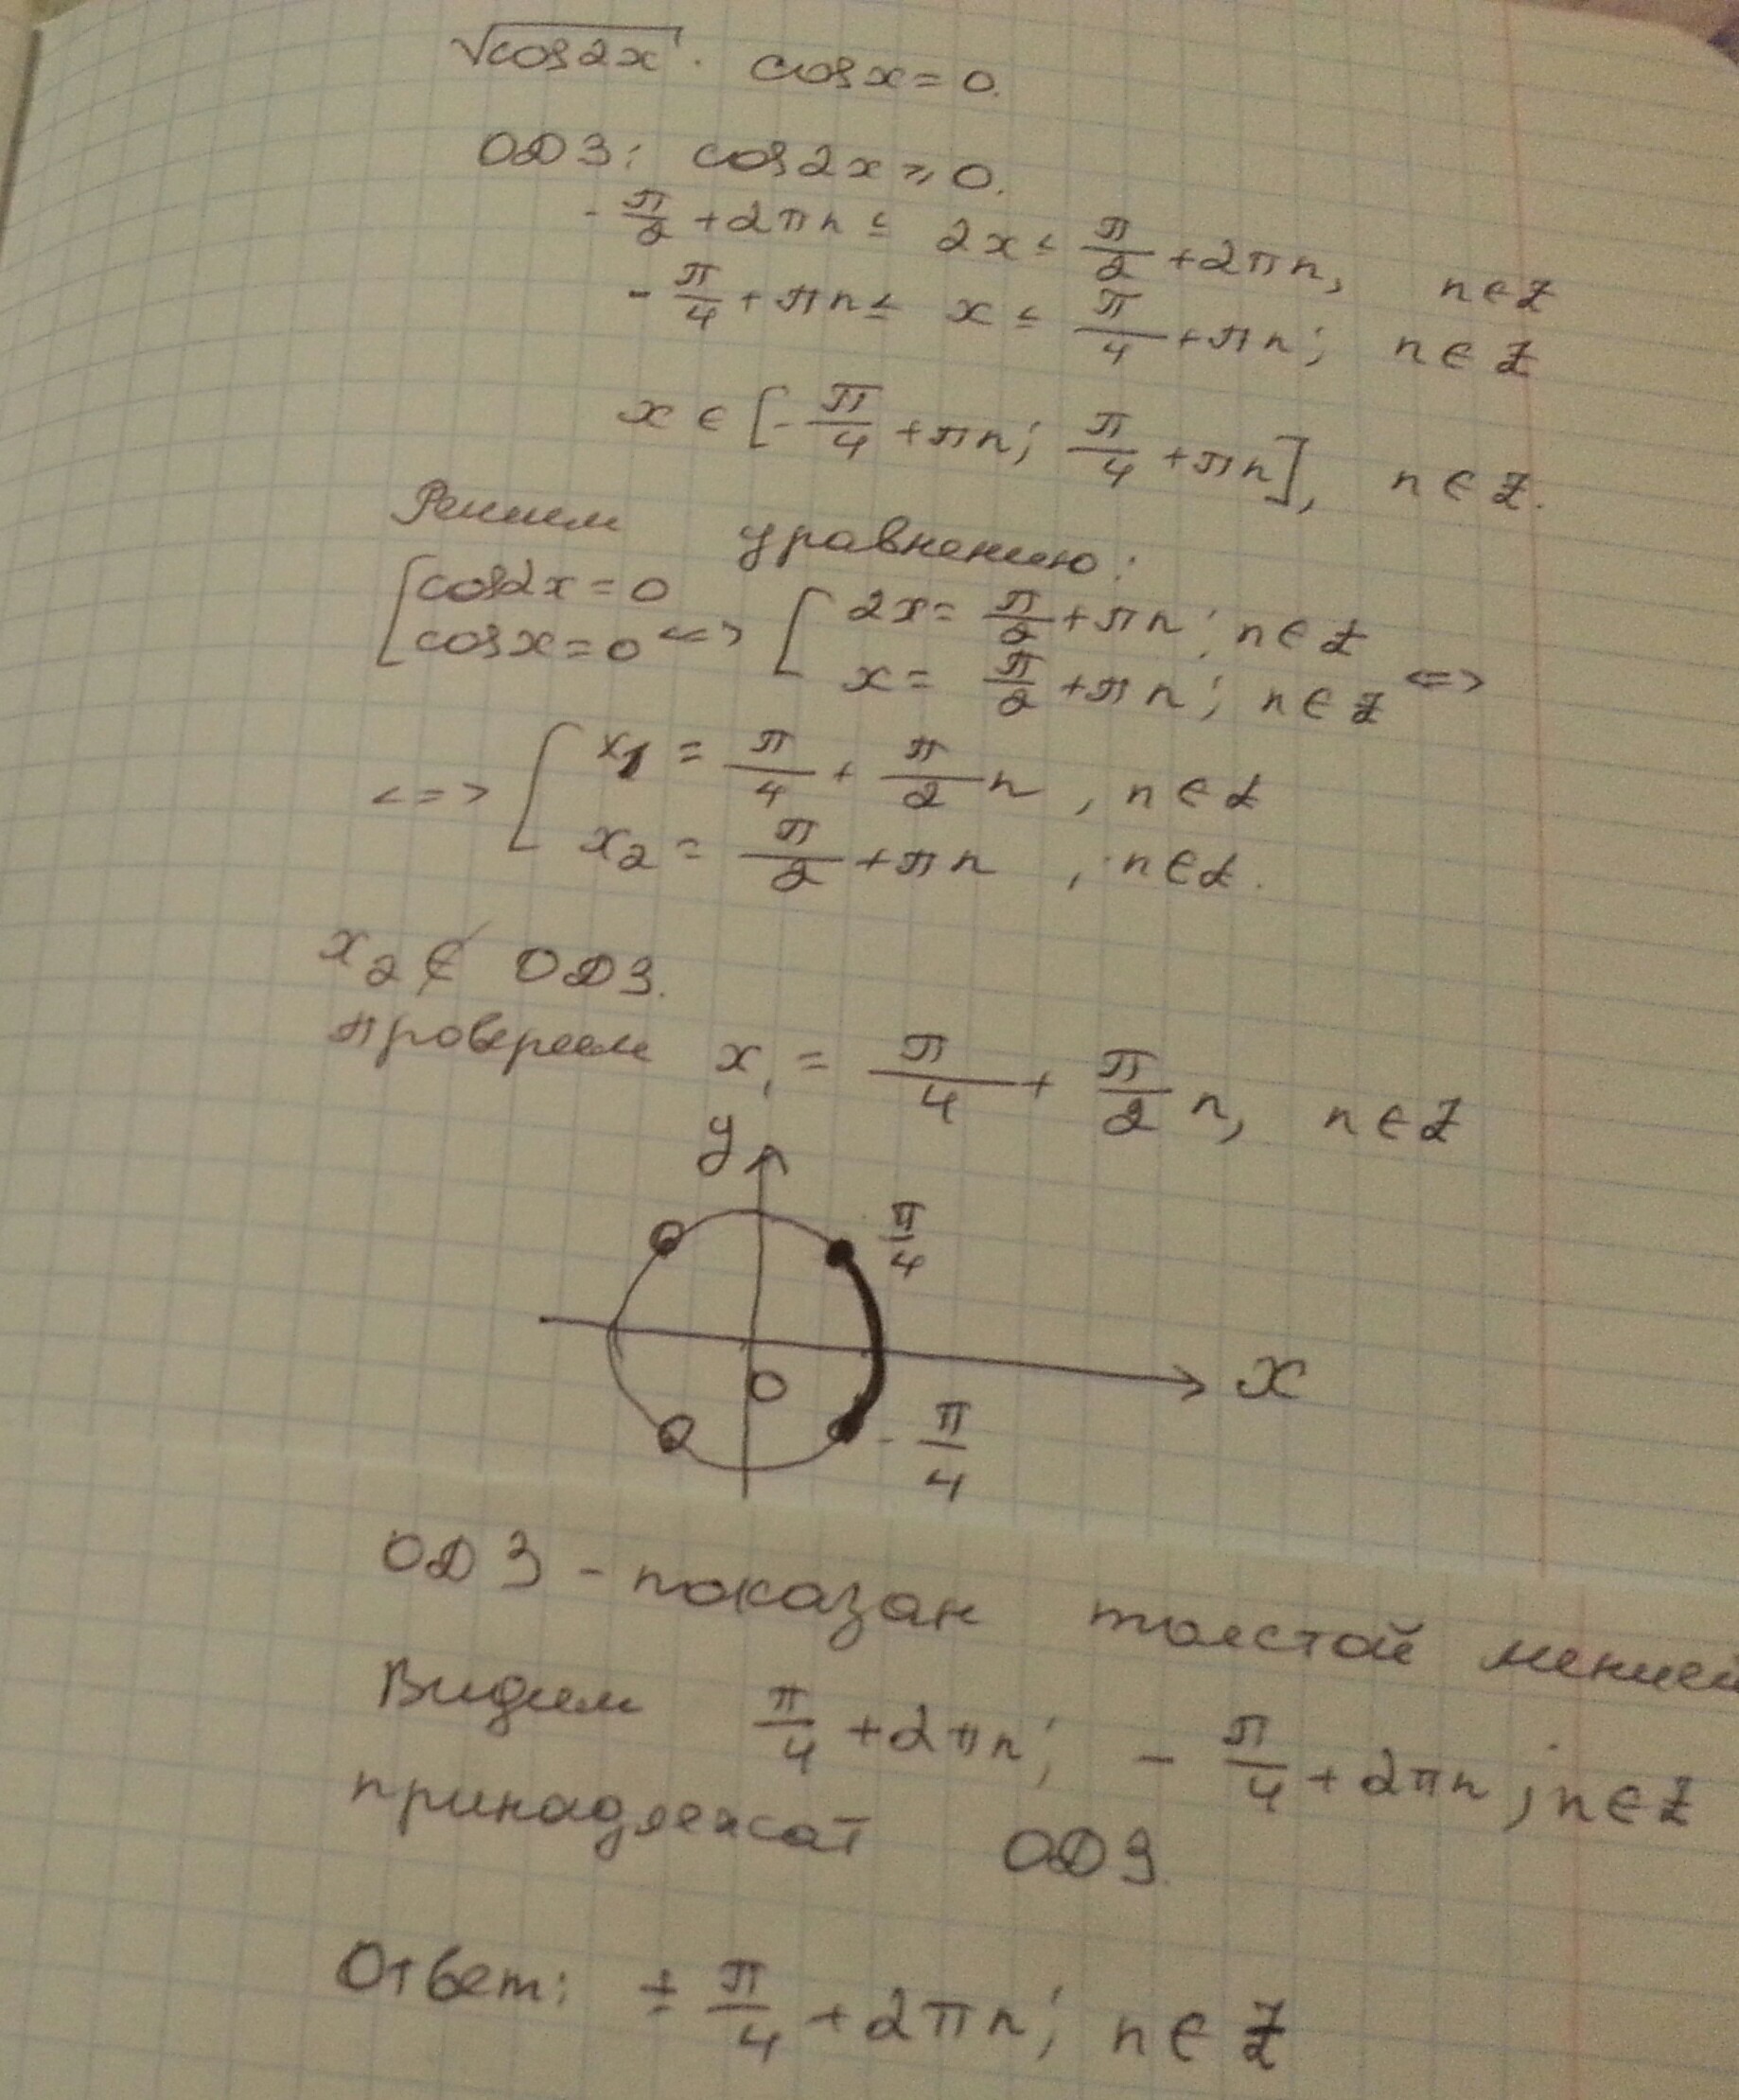 √cos2x · cosx = 0.
ОДЗ: cos2x ≥ 0.
-π/2 + 2πn ≤ 2x ≤ π/2 + 2πn, n ∈ Z
-π/4 + πn ≤ x ≤ π/4 + πn; n ∈ Z
x ∈ [-π/4 + πn; π/4 + πn], n ∈ Z.
Решим уравнению:
[cos2x = 0 cosx = 0 <=> [2x = π/2 + πn; n ∈ Z x = π/2 + πn; n ∈ Z <=>
<=> [x1 = π/4 + π/2 n, n ∈ Z x2 = π/2 + πn, n ∈ Z.
x2 ∉ ОДЗ.
проверим x1 = π/4 + π/2 n, n ∈ Z
y
π/4
0
x
-π/4
ОДЗ - показан толстой линией
Видим π/4 + 2πn; -π/4 + 2πn; n ∈ Z
принадлежат ОДЗ.
Ответ: ±π/4 + 2πn; n ∈ Z